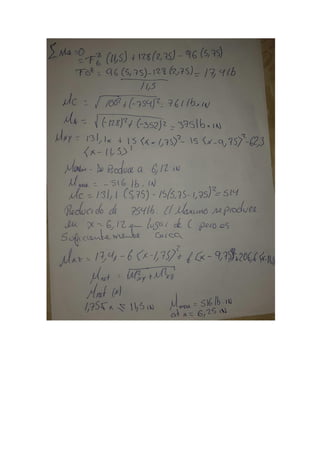 ΣMa=0
=F_b^z (11,5) + 128(2,75) - 96(5,75)
= 96(5,75) - 128(2,75) = 17,4 lb
11,5
Mc = √100²+(-754)² = 761 lb×in
= √(-128)²+(-352)² = 375 lb×in
Mxy = 131,1x + 15<x-1,75>² - 15<x-9,75>² - 62,3
<x-11,5>¹
Produce a 6,12 in
= -516 lb. in
Mc = 131,1(5,75) - 15(5,75-1,75)² = 514
Reducido de 754 lb. El Maximo se produce
en x = 6,12 en lugar de C pero es
Suficientemente cerca
Mxz = 17,4 - 6<x-1,75>² + 6<x-9,75>²
Mtot = √M²xy + M²xz
Mtot (x)
1,75 ≤ x ≤ 11,5 in Mmax = 516 lb. in
at x = 6,25 in